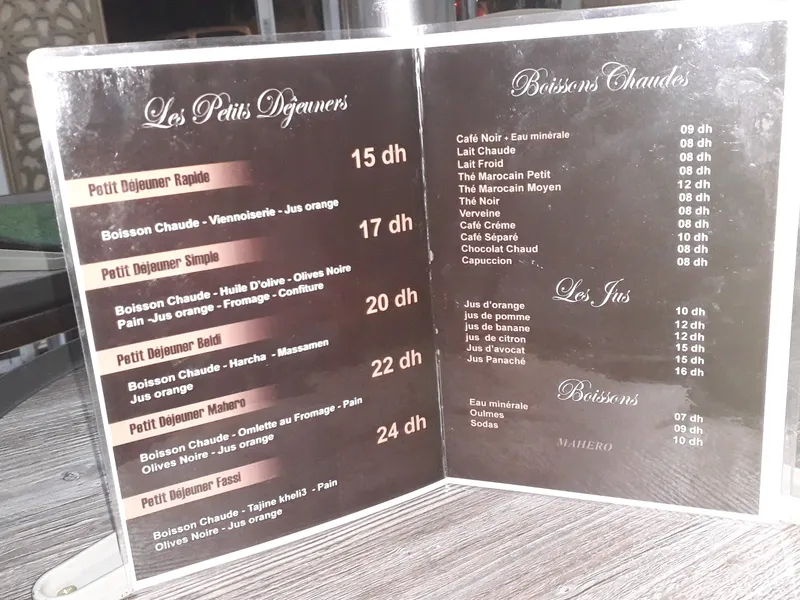 Les Petits Déjeuners
15 dh
Petit Déjeuner Rapide
Boisson Chaude - Viennoiserie - Jus orange
17 dh
Petit Déjeuner Simple
Boisson Chaude - Huile D'olive - Olives Noire
Pain -Jus orange - Fromage - Confiture
20 dh
Petit Déjeuner Beldi
Boisson Chaude - Harcha - Massamen
Jus orange
22 dh
Petit Déjeuner Mahero
Boisson Chaude - Omlette au Fromage - Pain
Olives Noire - Jus orange
24 dh
Petit Déjeuner Fassi
Boisson Chaude - Tajine kheli3 - Pain
Olives Noire - Jus orange
Boissons Chaudes
Café Noir + Eau minérale 09 dh
Lait Chaude 08 dh
Lait Froid 08 dh
Thé Marocain Petit 08 dh
Thé Marocain Moyen 12 dh
Thé Noir 08 dh
Verveine 08 dh
Café Créme 08 dh
Café Séparé 10 dh
Chocolat Chaud 08 dh
Capuccion 08 dh
Les Jus
Jus d'orange 10 dh
jus de pomme 12 dh
jus de banane 12 dh
jus de citron 15 dh
Jus d'avocat 15 dh
Jus Panaché 16 dh
Boissons
Eau minérale 07 dh
Oulmes 09 dh
Sodas 10 dh
MAHERO